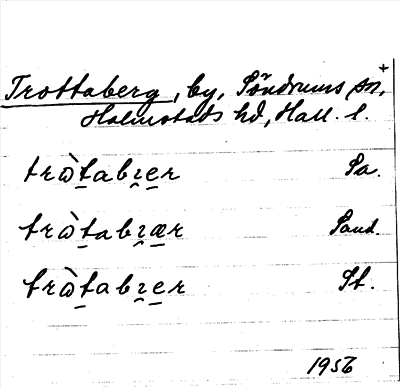 Trottaberg, by, Söndrums sn, +
Halmstads hd, Hall. l.
trὼt̠abɪ̯e̠r Sa.
trὼt̠abɪ̯æ̠r Sand.
trὼt̠abɪ̯e̠r St.
1956